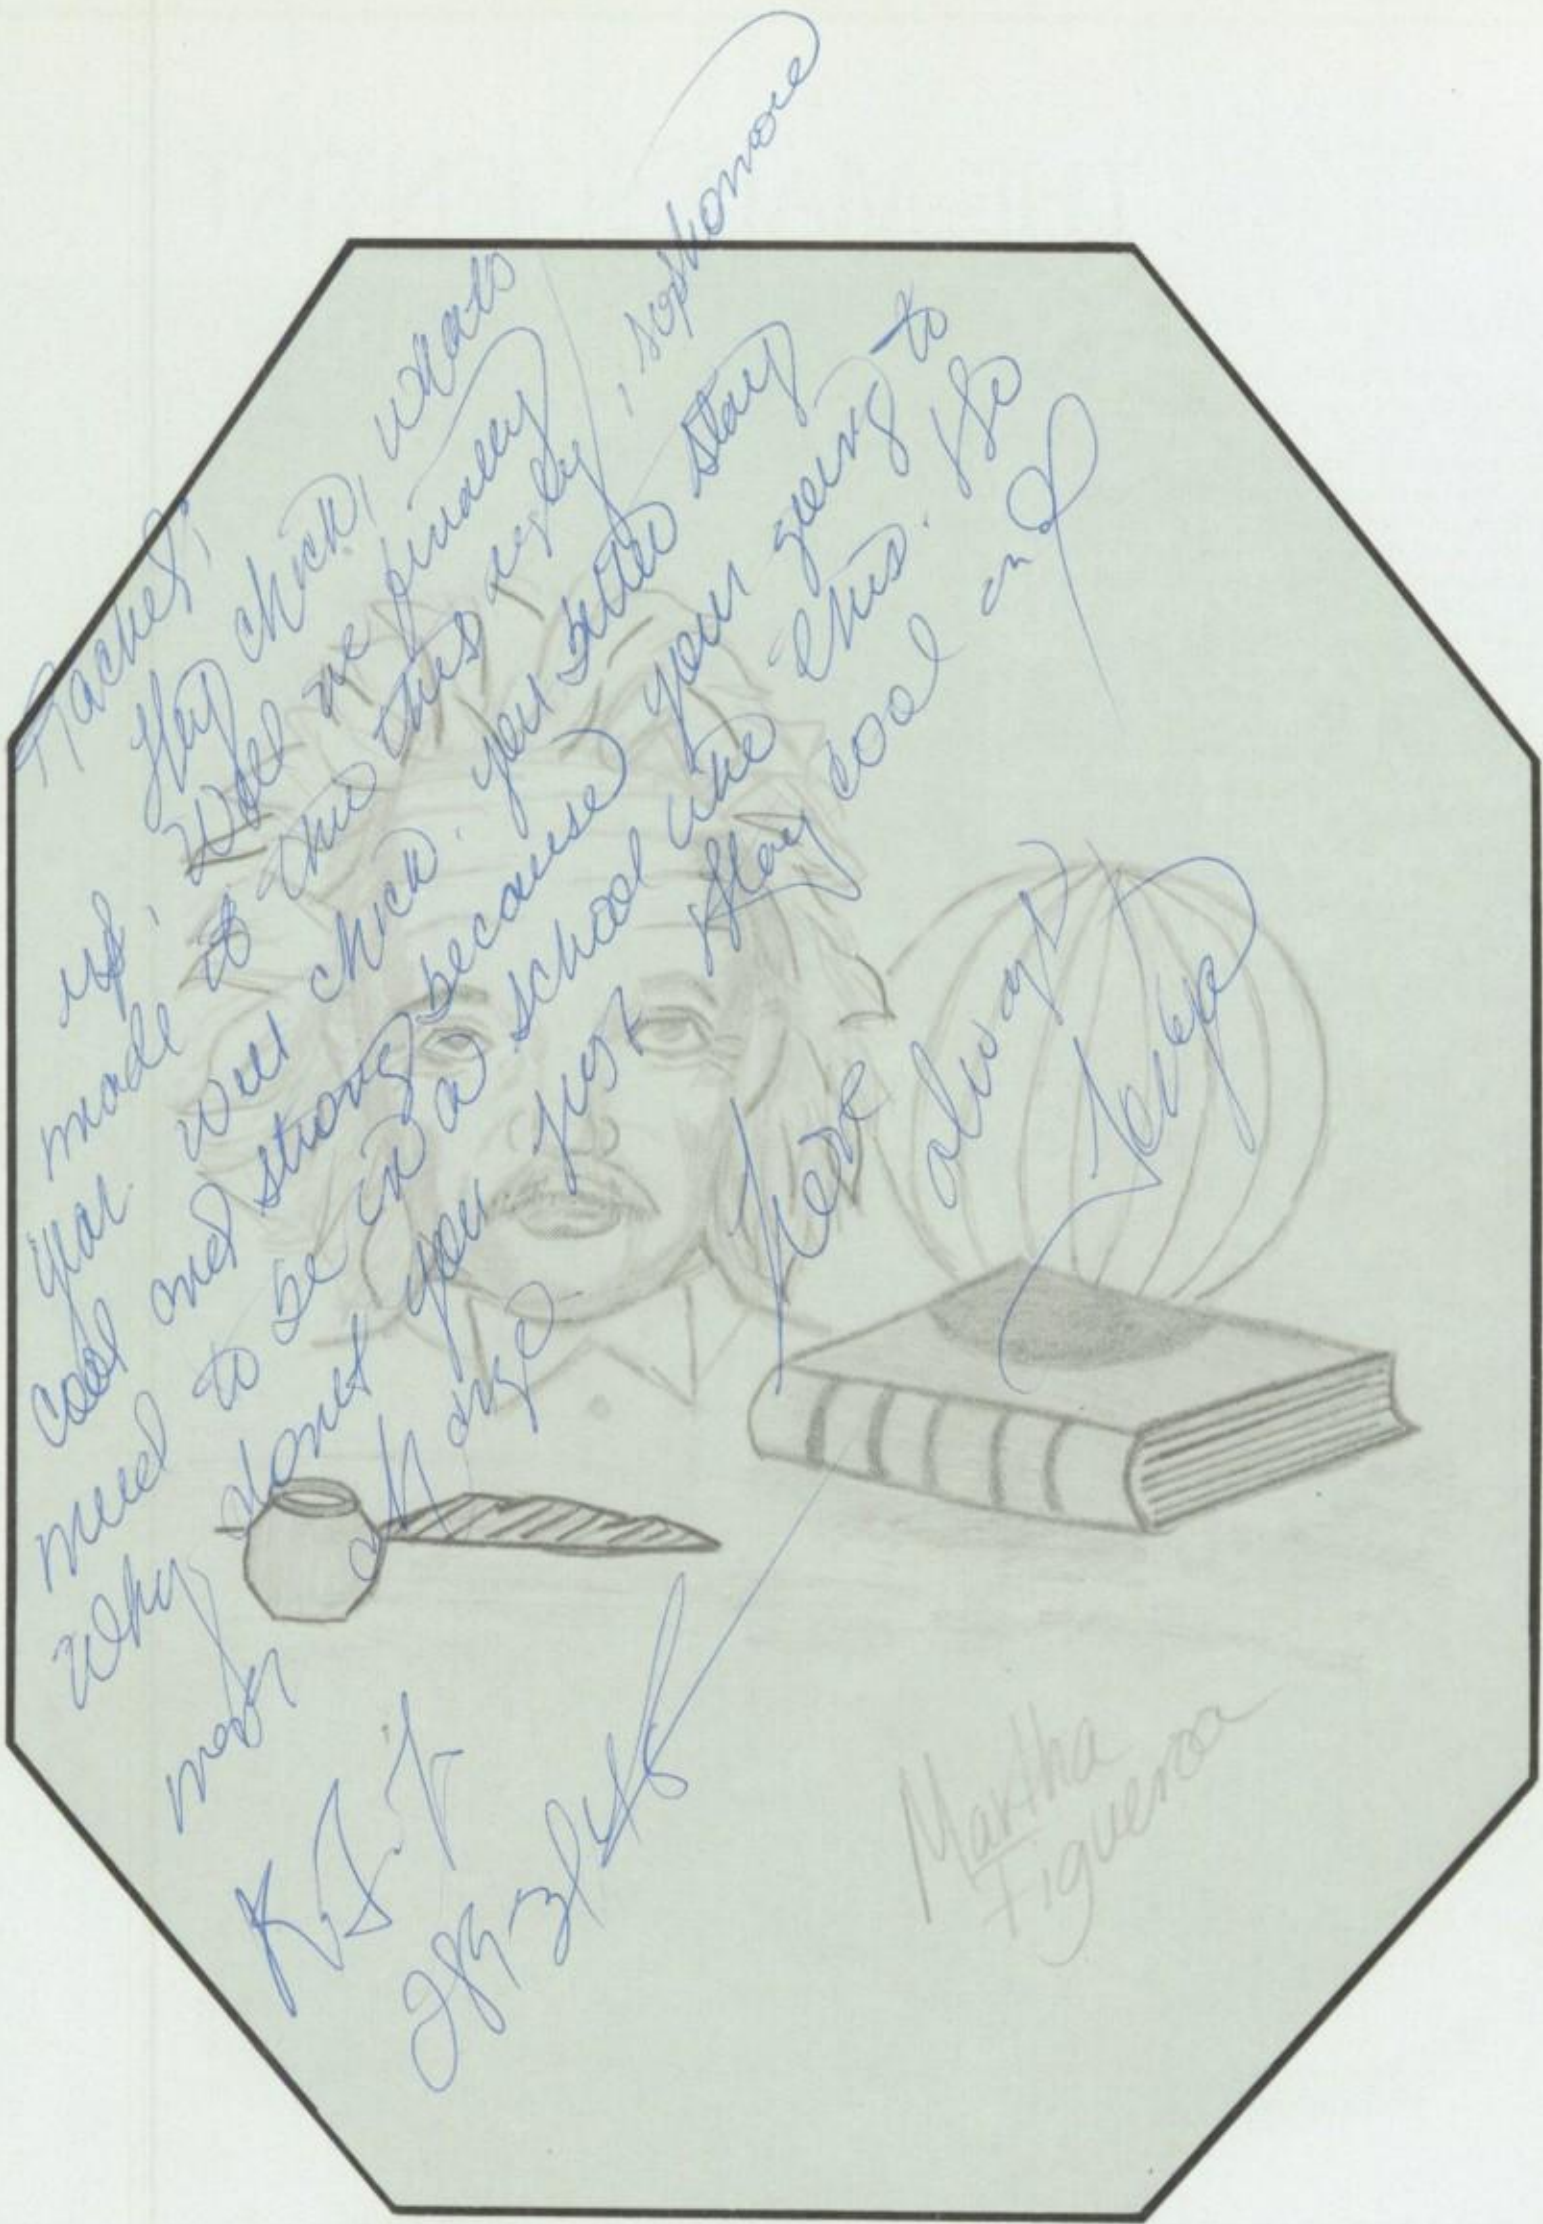 Rachel;
Hey chick, whats
up. Well we finally
made it thru this ugly, sophomore
year. Well chick. you better stay
cool and strong because your going to
need to be in a school like this. So
why donet you just stay cool and
off drugs
Love always
K.I.T.
Martha
Figueroa